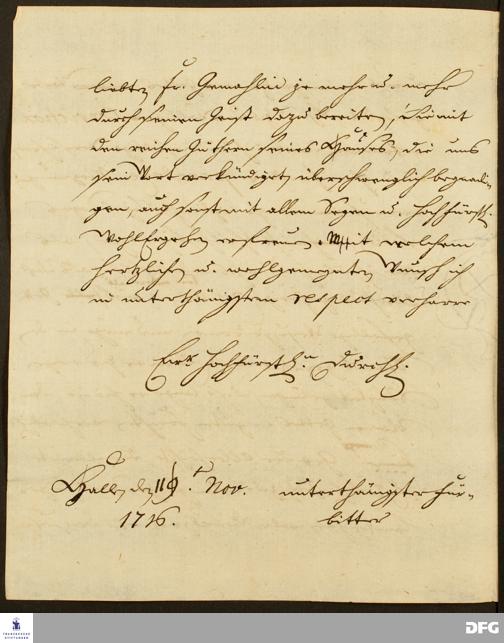 liebten Fr. Gemahlin je mehr u. mehr
durch seinen Geist dazu bereiten, Sie mit
den reichen Güthern seines Hauses, die uns
sein Wort verkündiget, überschwenglich begnadi-
gen, auch sonst mit allem Segen u. Hochfürstl.
Wohlergehen erfreuen. Mit welchem
hertzlichen u. wohlgemeynten Wunsch ich
in unterthänigstem respect verharre
Ew. Hochfürstl.n Durchl.
Halle den 19.t Nov.
1716.
unterthänigster Für-
bitter
FRANCKESCHE
STIFTUNGEN
DFG